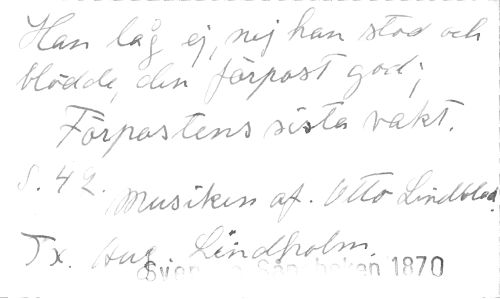 Han låg ej, nej han stod och
blödde, den förpost god;
Förpostens sista vakt.
S. 42.
Musiken af. Otto Lindblad.
Tx. Aug. Lindholm.
1870